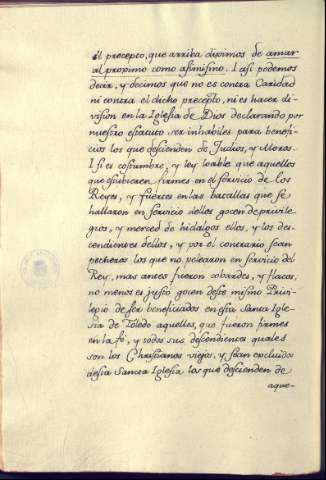 el precepto, que arriba diximos de amar
al proximo como asimismo. I asi podemos
decir, y decimos que no es contra Caridad
ni contra el dicho precepto, ni es hacer di-
vision en la Iglesia de Dios declarando por
nuestro estatuto ser inhabiles para benefi-
cios los que descienden de Judios, y Moros.
I si es costumbre, y ley loable que aquellos
que estubieren firmes en el servicio de los
Reyes, y fuertes en las batallas que se
hallaron en servicio dellos gocen de privile-
gios, y merced de hidalgos ellos, y los des-
cendientes dellos, y por el contrario sean
pecheros los que no pelearon en servicio del
Rey, mas antes fueron cobardes, y flacos;
no menos es justo gocen deste mismo Privi-
legio de ser beneficiados en esta Santa Igle-
sia de Toledo aquellos, que fueron firmes
en la fé, y todos sus descendientes quales
son los Christianos viejos, y sean excluidos
desta Santa Iglesia los que descienden de
aque-